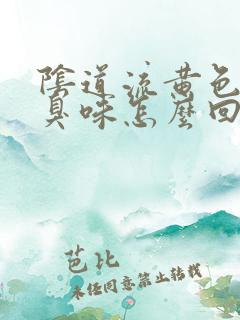 陰道流黃色
臭味怎麼回
芭比
未经同意禁止转载